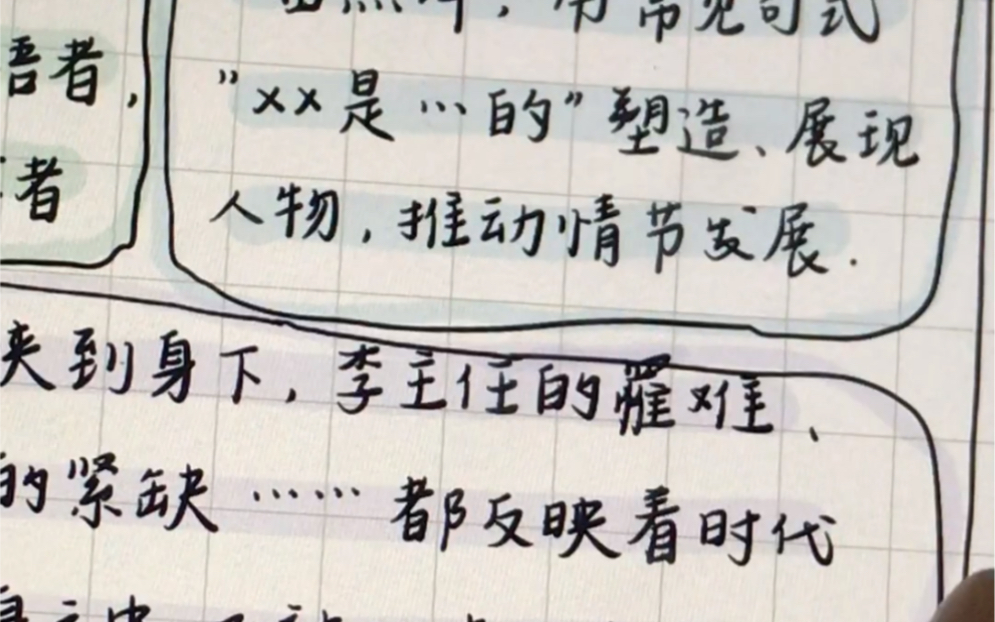 用常见句式
"xx是…的"塑造、展现
人物，推动情节发展.
悟者，
者
夹到身下，李主任的罹难、
的紧缺……都反映着时代